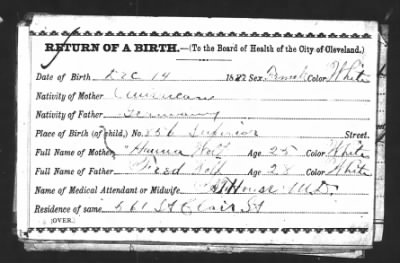 RETURN OF A BIRTH.—(To the Board of Health of the City of Cleveland.)
Date of Birth Dec 14 1882 Sex Female Color White
Nativity of Mother American
Nativity of Father Germany
Place of Birth (of child,) No. 856 Superior Street.
Full Name of Mother Hanna Wolf Age 25 Color White
Full Name of Father Fred Wolf Age 28 Color White
Name of Medical Attendant or Midwife House M.D.
Residence of same 561 St Clair St
[OVER.]